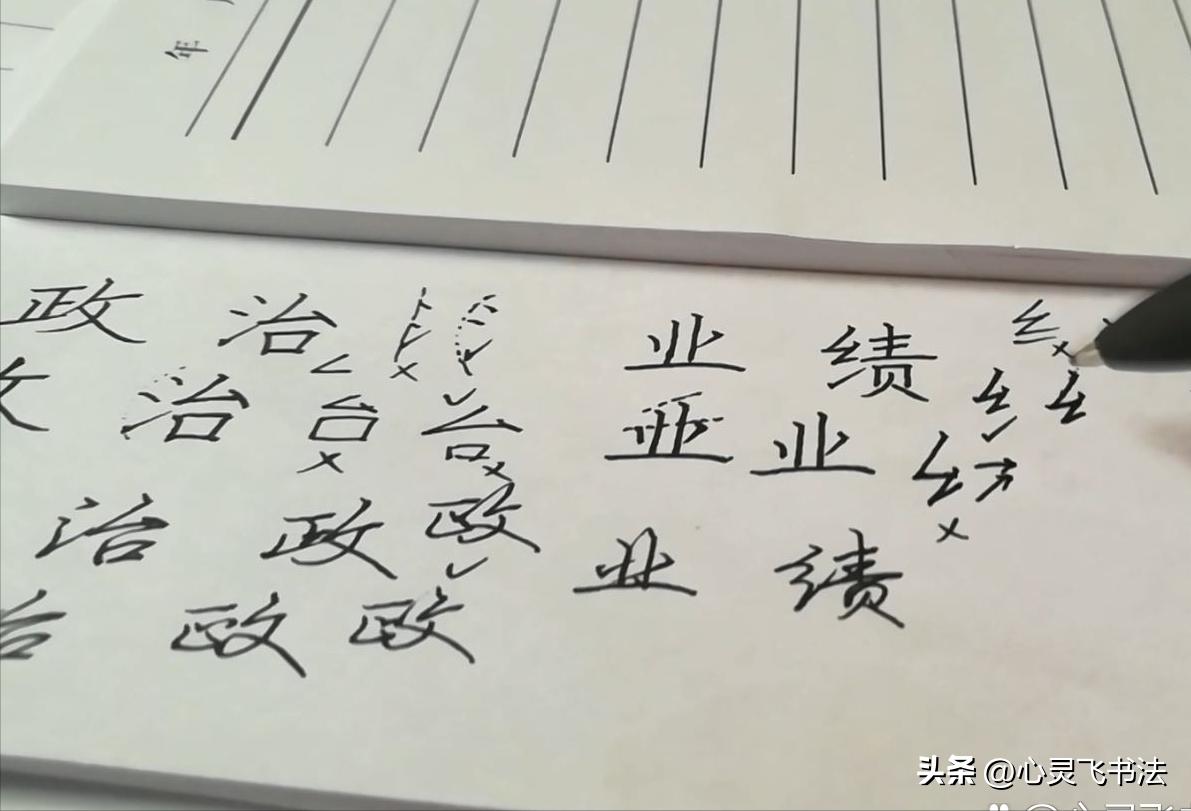 年
政 治 业 绩
治 台 台 业 业
治 政 政 业 绩
治 政 政
头条 @心灵飞书法